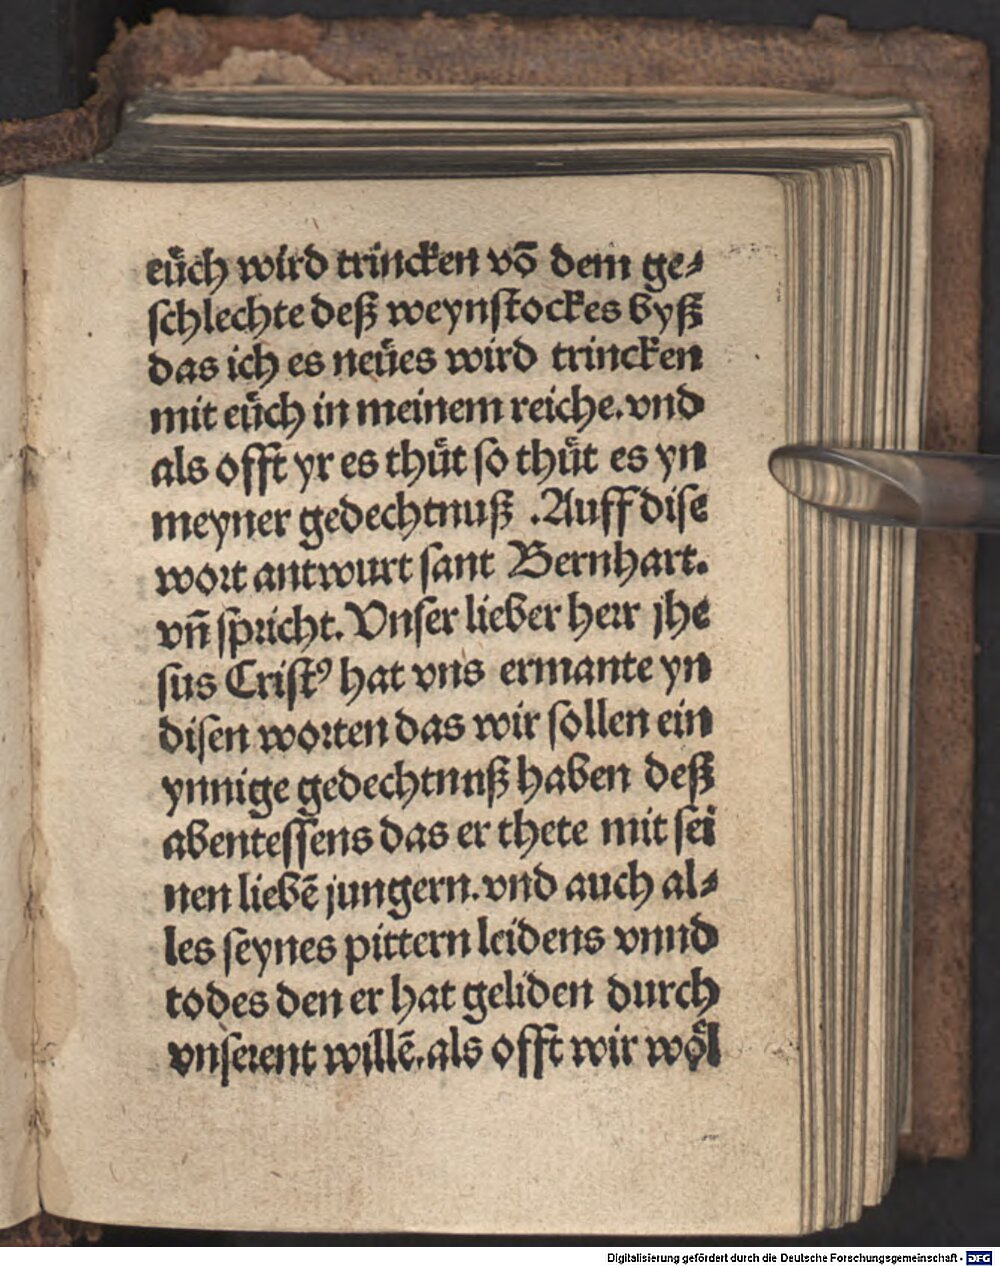 euͤch wird trincken võ dem ge⸗
ſchlechte deß weynſtockes byß
das ich es neuͤes wird trincken
mit euͤch in meinem reiche. vnd
als offt yr es thuͤt ſo thuͤt es yn
meyner gedechtnuß . Auff diſe
woꝛt antwurt ſant Bernhart.
vn̄ ſpꝛicht. Vnſer lieber herr jhe
ſus Criſtꝰ hat vns ermante yn
diſen woꝛten das wir ſollen ein
ynnige gedechtnuß haben deß
abenteſſens das er thete mit ſei
nen liebē jungern. vnd auch al⸗
les ſeynes pittern leidens vnnd
todes den er hat geliden durch
vnſerent willē. als offt wir woͤl
Digitalisierung gefördert durch die Deutsche Forschungsgemeinschaft - DFG